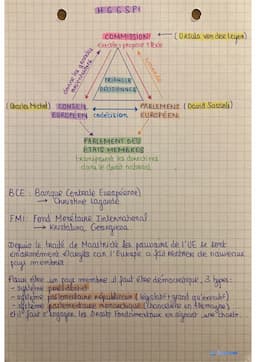 H G G S P 1
COMMISSION
(Ursula von der Leyen)
TRIANGLE
DÉCISIONNEL
(Charles Michel) CONSEIL EUROPÉEN
codécision
PARLEMENT EUROPÉEN (David Sassoli)
PARLEMENT DES
ÉTATS MEMBRES
transposent les directives
dans le droit national
BCE : Banque Centrale Européenne)
→ Christine Lagarde
FMI : Fond Monétaire International
→ Kristalina Georgieva
Depuis le traité de Maastricht les pouvoirs de l'UE se sont
énormément élargis car l'Europe a fait rentrer de nouveaux
pays membres
Pour être un pays membre il faut être démocratique, 3 types :
- système présidentiel
- système parlementaire républicain (législatif + grand qu'exécutif)
- système parlementaire monarchique (chancelière en Allemagne)
et il faut s'engager les Droits Fondamentaux en signant une charte.